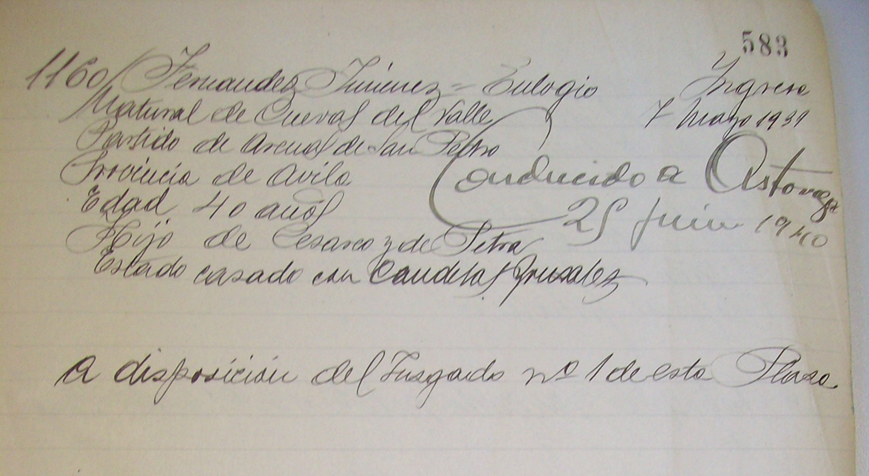 583
1160/ Fernandez Jimenez = Eulogio Ingresa
Natural de Cuevas del Valle 7 Mayo 1939
Partido de Arenas de San Pedro
Provincia de Avila Conducido a Astorga
Edad 40 años 25 Junio 1940
Hijo de Cesareo y de Petra
Estado casado con Candelas
a disposición del Jusgado nº 1 de esta Plasa